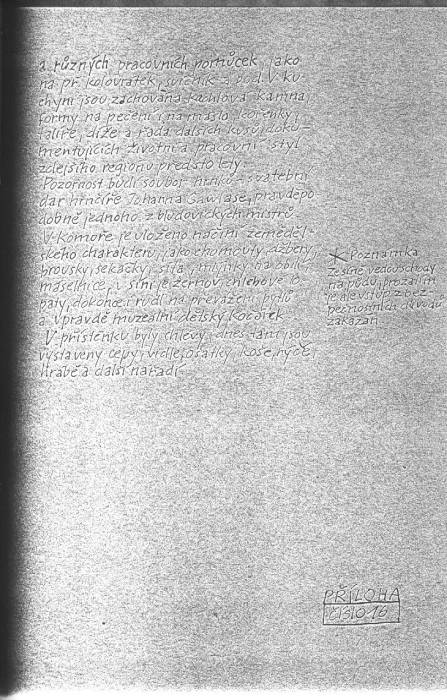 a různých pracovních pomůcek jako
na př. kolovrátek, svícník a pod. V ku-
chyni jsou zachována kachlová kamna,
formy na pečení i na máslo, kořenky,
talíře, díže a řada dalších kusů doku-
mentujících životní a pracovní styl
zdejšího regionu před sto lety.
Pozornost budí soubor hrnků - svatební
dar hrnčíře Johanna Gawlase, pravděpo
dobně jednoho z bludovických mistrů.
V komoře je uloženo náčiní zeměděl-
ského charakteru, jako chomouty, džbery,
brousky, sekáčky, síta, mlýnky na obilí,
máselnice, v síni je žernov, chlebové o-
paty, dokonce i rudl na převážení pytlů
a vpravdě muzeální dětský kočárek.
V přístěnku byly chlévy, dnes tam jsou
vystaveny cepy, vidle, ošatky, koše, rýče,
hrábě a další nářadí.
Poznámka
Ze síně vedou schody
na půdu, prozatím
je ale vstup z bez-
pečnostních důvodů
zakázán
PŘÍLOHA
číslo 16